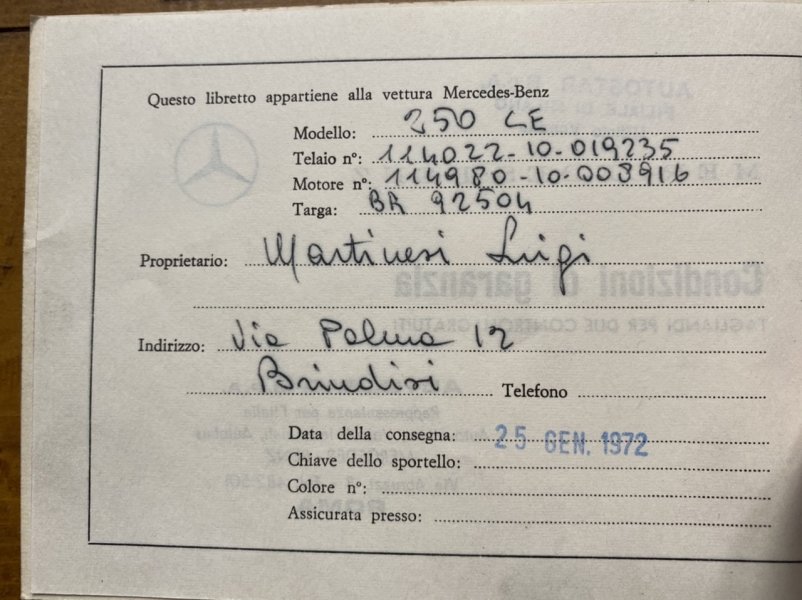 Questo libretto appartiene alla vettura Mercedes-Benz
Modello: 250 CE
Telaio n°: 114022-10-019235
Motore n°: 114980-10-003916
Targa: BR 92504
Proprietario: Martinesi Luigi
Indirizzo: Via Palma 12
Brindisi Telefono
Data della consegna: 25 GEN. 1972
Chiave dello sportello:
Colore n°:
Assicurata presso:
Condizioni di garanzia
TAGLIANDI PER DUE CONTROLLI GRATUITI